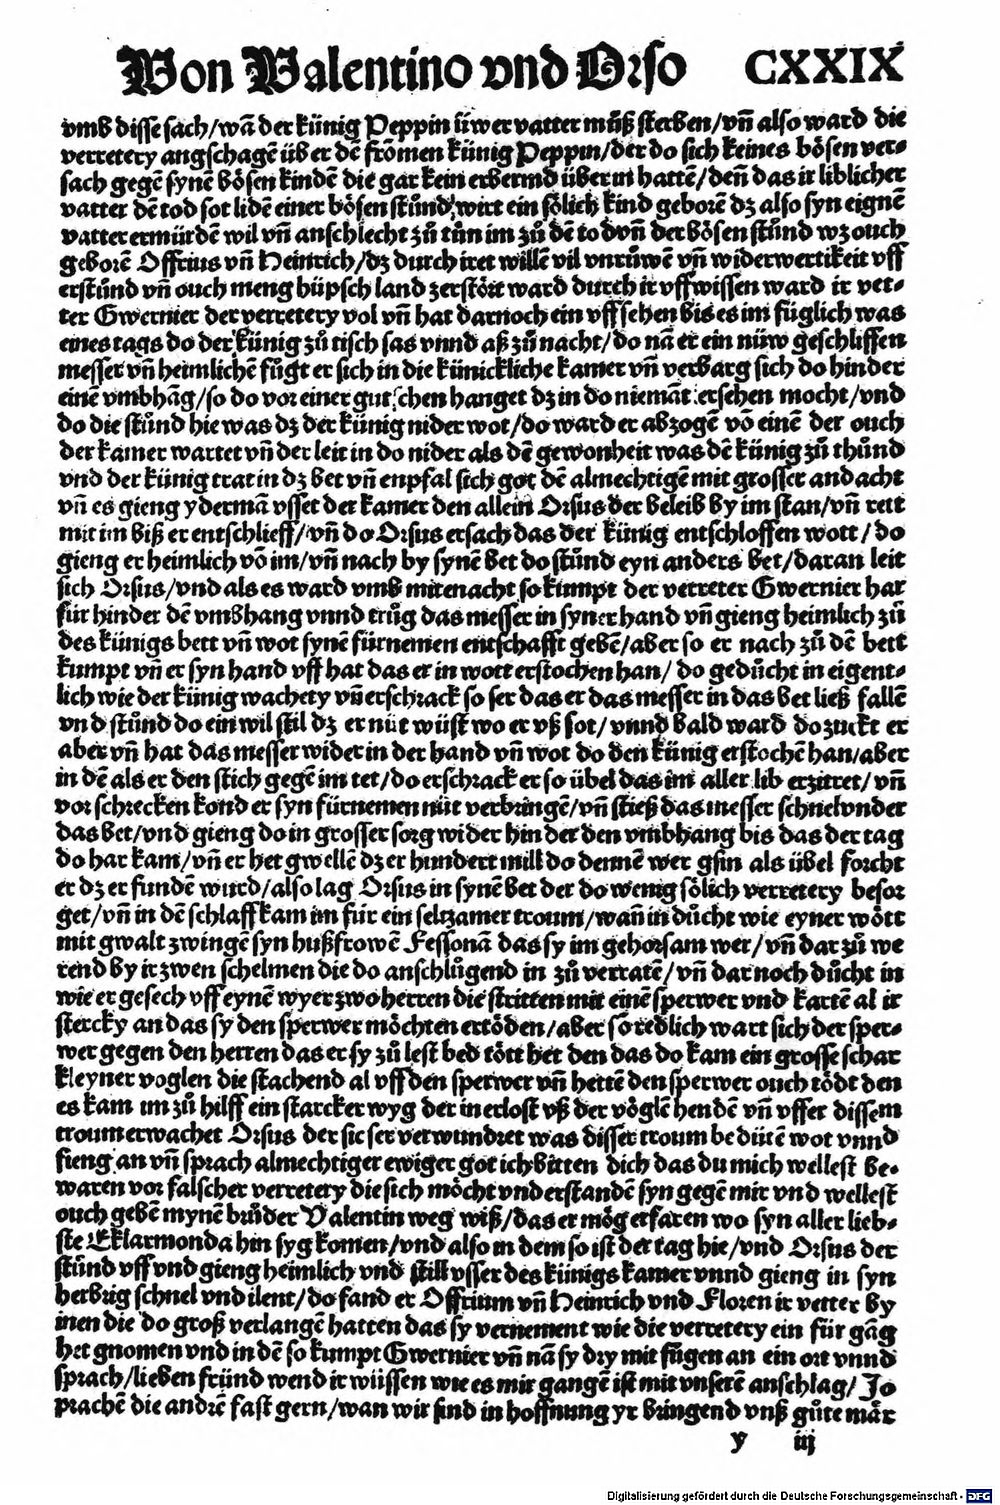 Von Valentino vnd Orso CXXIX
vmb disse sach/wā der künig Peppin üwer vatter můß sterben/vñ also ward die
verretery angschagē über dē frōmen künig Peppin/der do sich keines bösen ver-
sach gegē synē bösen kindē die gar kein erbermd über in hattē/deñ das ir liblicher
vatter dē tod sot lidē einer bösen stůnd/wirt ein sölich kind geborē dz also syn eignē
vatter ermürdē wil vñ anschlecht zů tůn im zů dē tod vñ der bösen stůnd wz ouch
geborē Offrius vñ Heinrich/dz durch iret willē vil vnrůwē vñ widerwertikeit vff
erstůnd vñ ouch meng hüpsch land zerstört ward durch ir vffwissen ward ir vet-
ter Gwernier der verretery vol vñ hat darnoch ein vffsehen bis es im füglich was
eines tags do der künig zů tisch sas vnnd aß zů nacht/do nā er ein nüw geschliffen
messer vñ heimlichē fůgt er sich in die künickliche kamer vñ verbarg sich do hinder
einē vmbhāg/so do vor einer gutschen hanget dz in do niemāt ersehen mocht/vnd
do die stůnd hie was dz der künig nider wot/do ward er abzogē vō einē der ouch
der kamer wartet vñ der leit in do nider als dē gewonheit was dē künig zů thůnd
vnd der künig trat in dz bet vñ enpfal sich got dē almechtigē mit grosser andacht
vñ es gieng ydermā vsset der kamer den allein Orsus der beleib by im stan/vñ rett
mit im biß er entschlieff/vñ do Orsus ersach das der künig entschloffen wott/do
gieng er heimlich vō im/vñ nach by synē bet do stůnd eyn anders bet/daran leit
sich Orsus/vnd als es ward vmb mitenacht so kumpt der verreter Gwernier har
für hinder dē vmbhang vnnd trůg das messer in syner hand vñ gieng heimlich zů
des künigs bett vñ wot synē fürnemen entschafft gebē/aber so er nach zů dē bett
kumpt vñ er syn hand vff hat das er in wott erstochen han/do gedůcht in eigent-
lich wie der künig wachety vñ erschrack so ser das er das messer in das bet ließ fallē
vnd stůnd do ein wil stil dz er nüt wüst wo er vß sot/vnnd bald ward do zuckt er
aber vñ hat das messer wider in der hand vñ wot do den künig erstochē han/aber
in dē als er den stich gegē im tet/do erschrack er so übel das im aller lib erzitret/vñ
vor schrecken kond er syn fürnemen nüt verbringē/vñ stieß das messer schnel vnder
das bet/vnd gieng do in grosser sorg wider hin der den vmbhang bis das der tag
do har kam/vñ er het gwellē dz er hundert mill do dennē wer gsin als übel forcht
er dz er fundē wurd/also lag Orsus in synē bet der do wenig sölich verretery besor
get/vñ in dē schlaff kam im für ein seltzamer troum/wañ in důcht wie eyner wött
mit gwalt zwingē syn hußfrowē Fessonā das sy im gehorsam wer/vñ dar zů we
rend by ir zwen schelmen die do anschlůgend in zů verratē/vñ dar noch důcht in
wie er gesech vff eynē wyer zwo herren die stritten mit einē sperwer vnd kartē al ir
stercky an das sy den sperwer möchten ertöden/aber so redlich wart sich der sper-
wer gegen den herren das er sy zů lest bed tött het den das do kam ein grosse schar
kleyner voglen die stachend al vff den sperwer vñ hettē den sperwer ouch tödt den
es kam im zů hilff ein starcker wyg der in erlost vß der vöglē hendē vñ vsser dissem
troum erwachet Orsus der sic ser verwundret was disser troum bedütē wot vnnd
fieng an vñ sprach almechtiger ewiger got ich bitten dich das du mich wellest be-
waren vor falscher verretery die sich möcht vnderstandē syn gegē mir vnd wellest
ouch gebē mynē brůder Valentin weg wiß/das er mög erfaren wo syn aller lieb-
ste Eklarmonda hin syg komen/vnd also in dem so ist der tag hie/vnd Orsus der
stůnd vff vnd gieng heimlich vnd still vsser des künigs kamer vnnd gieng in syn
herbrig schnel vnd ilent/do fand er Offrium vñ Heinrich vnd Floren ir vetter by
inen die do groß verlangē hatten das sy vernement wie die verretery ein für gāg
het gnomen vnd in dē so kumpt Gwernier vñ nā sy dry mit fůgen an ein ort vnnd
sprach/lieben fründ wend ir wüssen wie es mir gangē ist mit vnserē anschlag/Jo
prachē die andrē fast gern/wan wir sind in hoffnung yr bringend vnß gůte mär
y iij
Digitalisierung gefördert durch die Deutsche Forschungsgemeinschaft - DFG